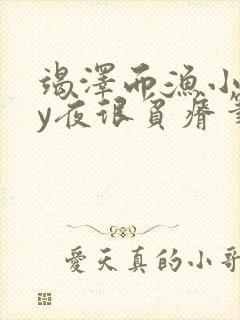 竭澤而漁小
y夜很負瘠筆
愛天真的小哥